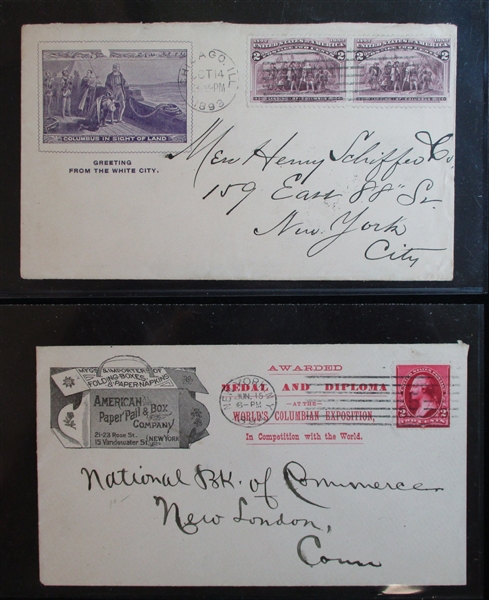 COLUMBUS IN SIGHT OF LAND
GREETING
FROM THE WHITE CITY.
CHICAGO, ILL.
OCT 14
1893
2 UNITED STATES OF AMERICA 2
2 UNITED STATES OF AMERICA 2
Mess Henry Schiffer Co
159 East 88" St.
New York
City
MFGS & IMPORTERS OF
FOLDING-BOXES
& PAPER NAPKINS
AMERICAN
Paper Pail & Box
COMPANY
21-23 Rose St.,
15 Vandewater St.
NEW YORK
NEW YORK, N.Y.
JUN 15
6-PM
AWARDED
MEDAL AND DIPLOMA
AT THE
WORLD'S COLUMBIAN EXPOSITION,
In Competition with the World.
2 TWO CENTS 2
National Bk. of Commerce
New London,
Conn